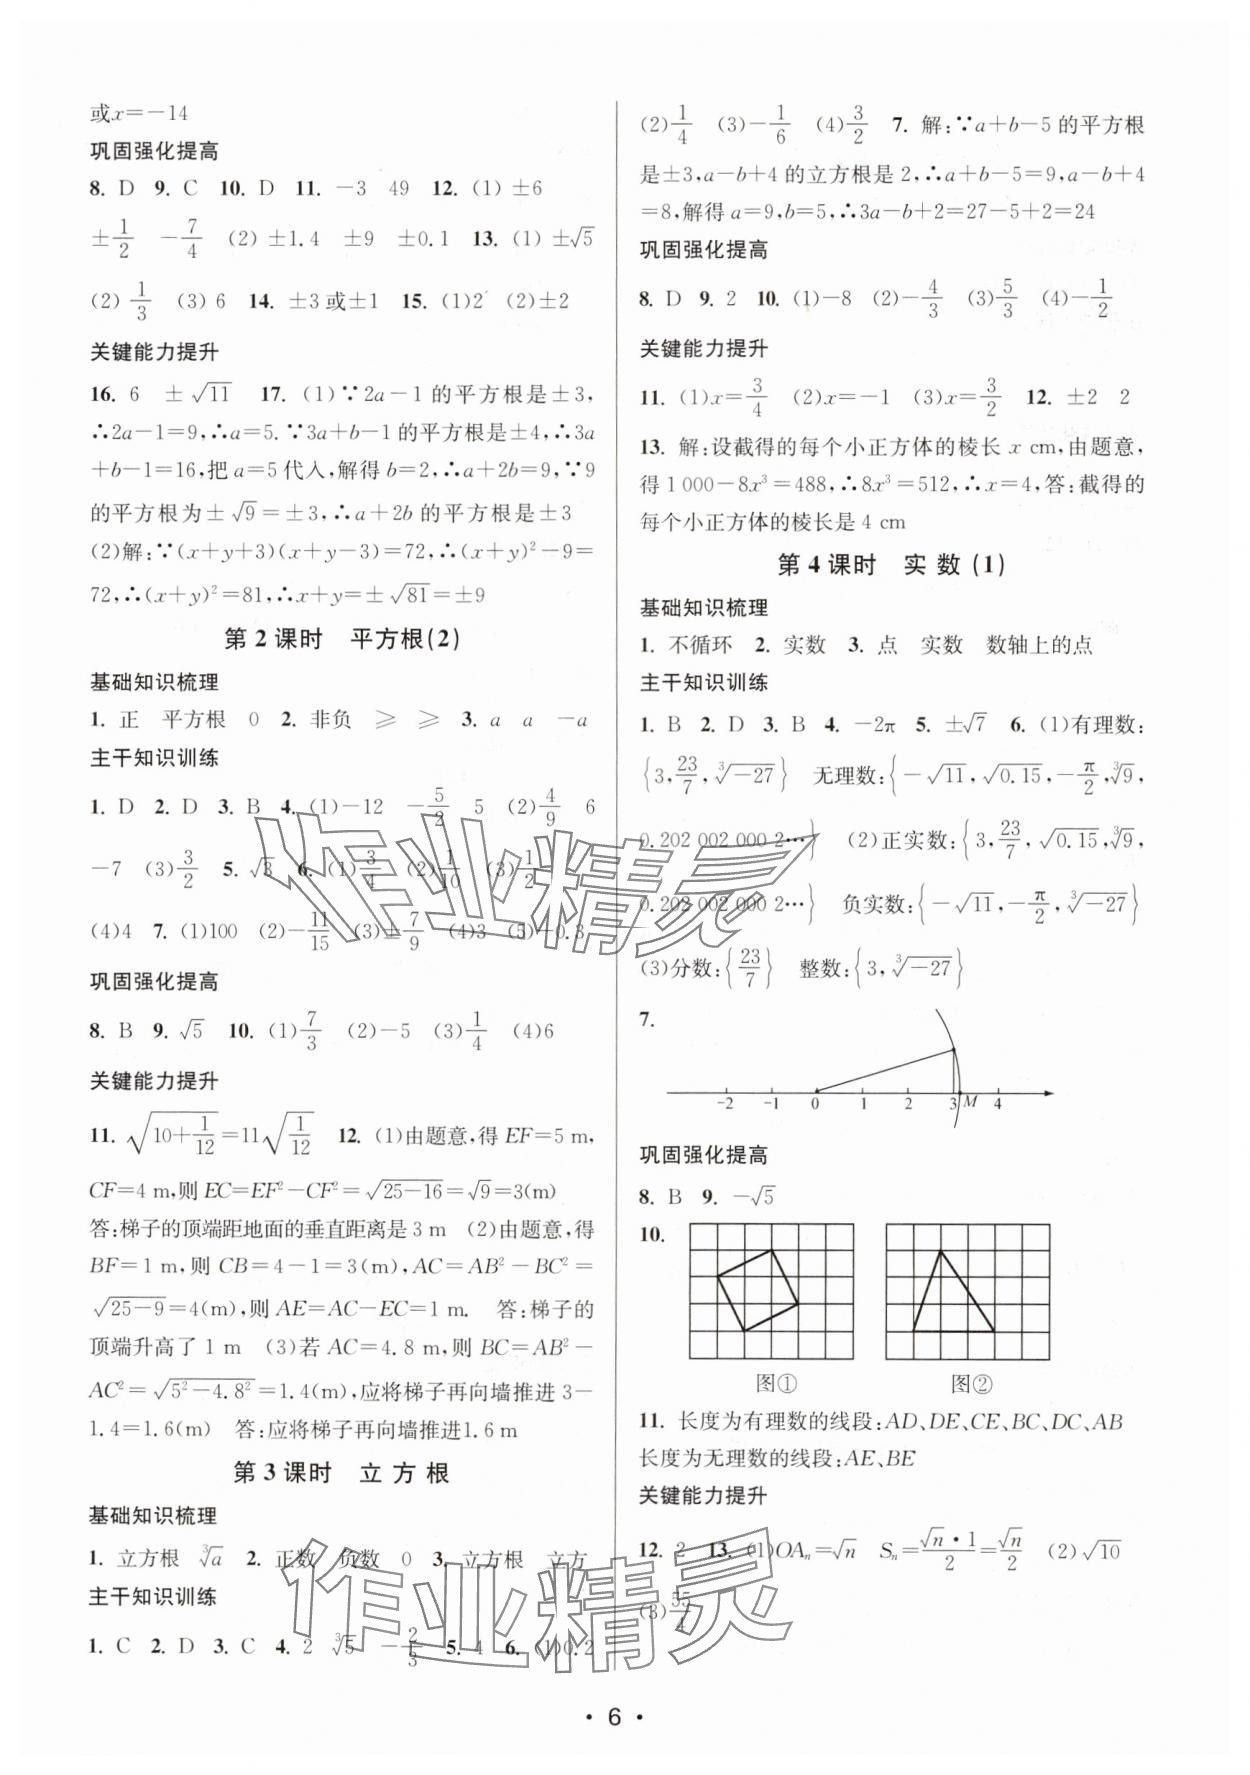 或x=-14
巩固强化提高
8. D 9. C 10. D 11. -3 49 12. (1) ±6
±1/2 -7/4 (2) ±1.4 ±9 ±0.1 13. (1) ±√5
(2) 1/3 (3) 6 14. ±3或±1 15. (1)2 (2)±2
关键能力提升
16. 6 ±√11 17. (1)∵2a-1的平方根是±3,
∴2a-1=9,∴a=5.∵3a+b-1的平方根是±4,∴3a
+b-1=16,把a=5代入,解得b=2,∴a+2b=9,∵9
的平方根为±√9=±3,∴a+2b的平方根是±3
(2)解:∵(x+y+3)(x+y-3)=72,∴(x+y)²-9=
72,∴(x+y)²=81,∴x+y=±√81=±9
第2课时 平方根(2)
基础知识梳理
1. 正 平方根 0 2. 非负 ≥ ≥ 3. a a -a
主干知识训练
1. D 2. D 3. B 4. (1)-12 -5/2 5 (2)4/9 6
-7 (3)3/2 5. √3 6. (1)3/4 (2)1/10 (3)1/2
(4)4 7. (1)100 (2)-11/15 (3)±7/9 (4)3 (5)-0.3
巩固强化提高
8. B 9. √5 10. (1)7/3 (2)-5 (3)1/4 (4)6
关键能力提升
11. √(10+1/12)=11√(1/12) 12. (1)由题意,得EF=5 m,
CF=4 m,则EC=EF²-CF²=√(25-16)=√9=3(m)
答:梯子的顶端距地面的垂直距离是3 m (2)由题意,得
BF=1 m,则CB=4-1=3(m),AC=AB²-BC²=
√(25-9)=4(m),则AE=AC-EC=1 m. 答:梯子的
顶端升高了1 m (3)若AC=4.8 m,则BC=AB²-
AC²=√(5²-4.8²)=1.4(m),应将梯子再向墙推进3-
1.4=1.6(m) 答:应将梯子再向墙推进1.6 m
第3课时 立方根
基础知识梳理
1. 立方根 ³√a 2. 正数 负数 0 3. 立方根 立方
主干知识训练
1. C 2. D 3. C 4. 2 ³√5 -2/3 5. 4 6. (1)0.2
(2)1/4 (3)-1/6 (4)3/2 7. 解:∵a+b-5的平方根
是±3,a-b+4的立方根是2,∴a+b-5=9,a-b+4
=8,解得a=9,b=5,∴3a-b+2=27-5+2=24
巩固强化提高
8. D 9. 2 10. (1)-8 (2)-4/3 (3)5/3 (4)-1/2
关键能力提升
11. (1)x=3/4 (2)x=-1 (3)x=3/2 12. ±2 2
13. 解:设截得的每个小正方体的棱长x cm,由题意,
得1 000-8x³=488,∴8x³=512,∴x=4,答:截得的
每个小正方体的棱长是4 cm
第4课时 实数(1)
基础知识梳理
1. 不循环 2. 实数 3. 点 实数 数轴上的点
主干知识训练
1. B 2. D 3. B 4. -2π 5. ±√7 6. (1)有理数:
{3,23/7,³√-27} 无理数:{-√11,√0.15,-π/2,³√9,
0.202 002 000 2…} (2)正实数:{3,23/7,√0.15,³√9,
0.202 002 000 2…} 负实数:{-√11,-π/2,³√-27}
(3)分数:{23/7} 整数:{3,³√-27}
7.
-2 -1 0 1 2 3 M 4
巩固强化提高
8. B 9. -√5
10.
图① 图②
11. 长度为有理数的线段:AD、DE、CE、BC、DC、AB
长度为无理数的线段:AE、BE
关键能力提升
12. 2 13. (1)OAₙ=√n Sₙ=√n·1/2=√n/2 (2)√10
(3)55/4
• 6 •
作业精灵
作业精灵